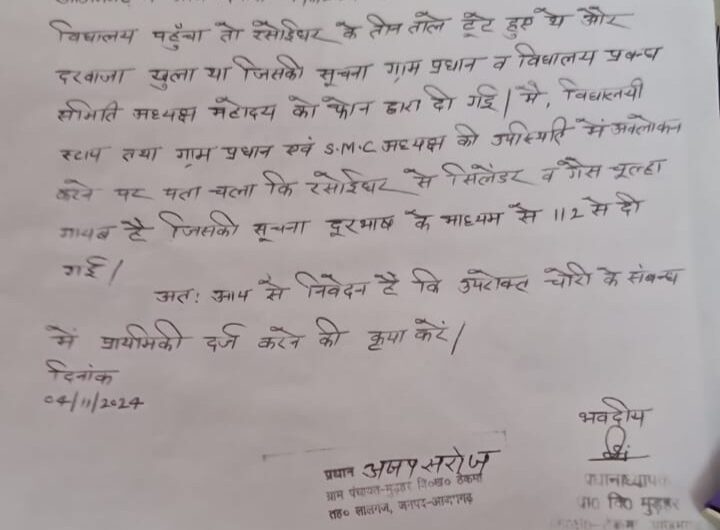 विद्यालय पहुँचा तो रसोईघर के तीन ताले टूटे हुए थे और
दरवाजा खुला था जिसकी सूचना ग्राम प्रधान व विद्यालय प्रबन्ध
समिति अध्यक्ष महोदय को फोन द्वारा दी गई। मै, विद्यालयी
स्टाप तथा ग्राम प्रधान एवं S.M.C अध्यक्ष की उपस्थिति में अवलोकन
करने पर पता चला कि रसोईघर से सिलेंडर व गैस चूल्हा
गायब है जिसकी सूचना दूरभाष के माध्यम से 112 से दी
गई।
अतः आप से निवेदन है कि उपरोक्त चोरी के संबन्ध
में प्राथमिकी दर्ज करने की कृपा करें।
दिनांक
04/11/2024
भवदीय
प्रधान अजय सरोज
ग्राम पंचायत-मुड़हर वि०ख० ठेकमा
तह० लालगंज, जनपद-आजमगढ़
प्रधानाध्यापक
प्रा० वि० मुड़हर